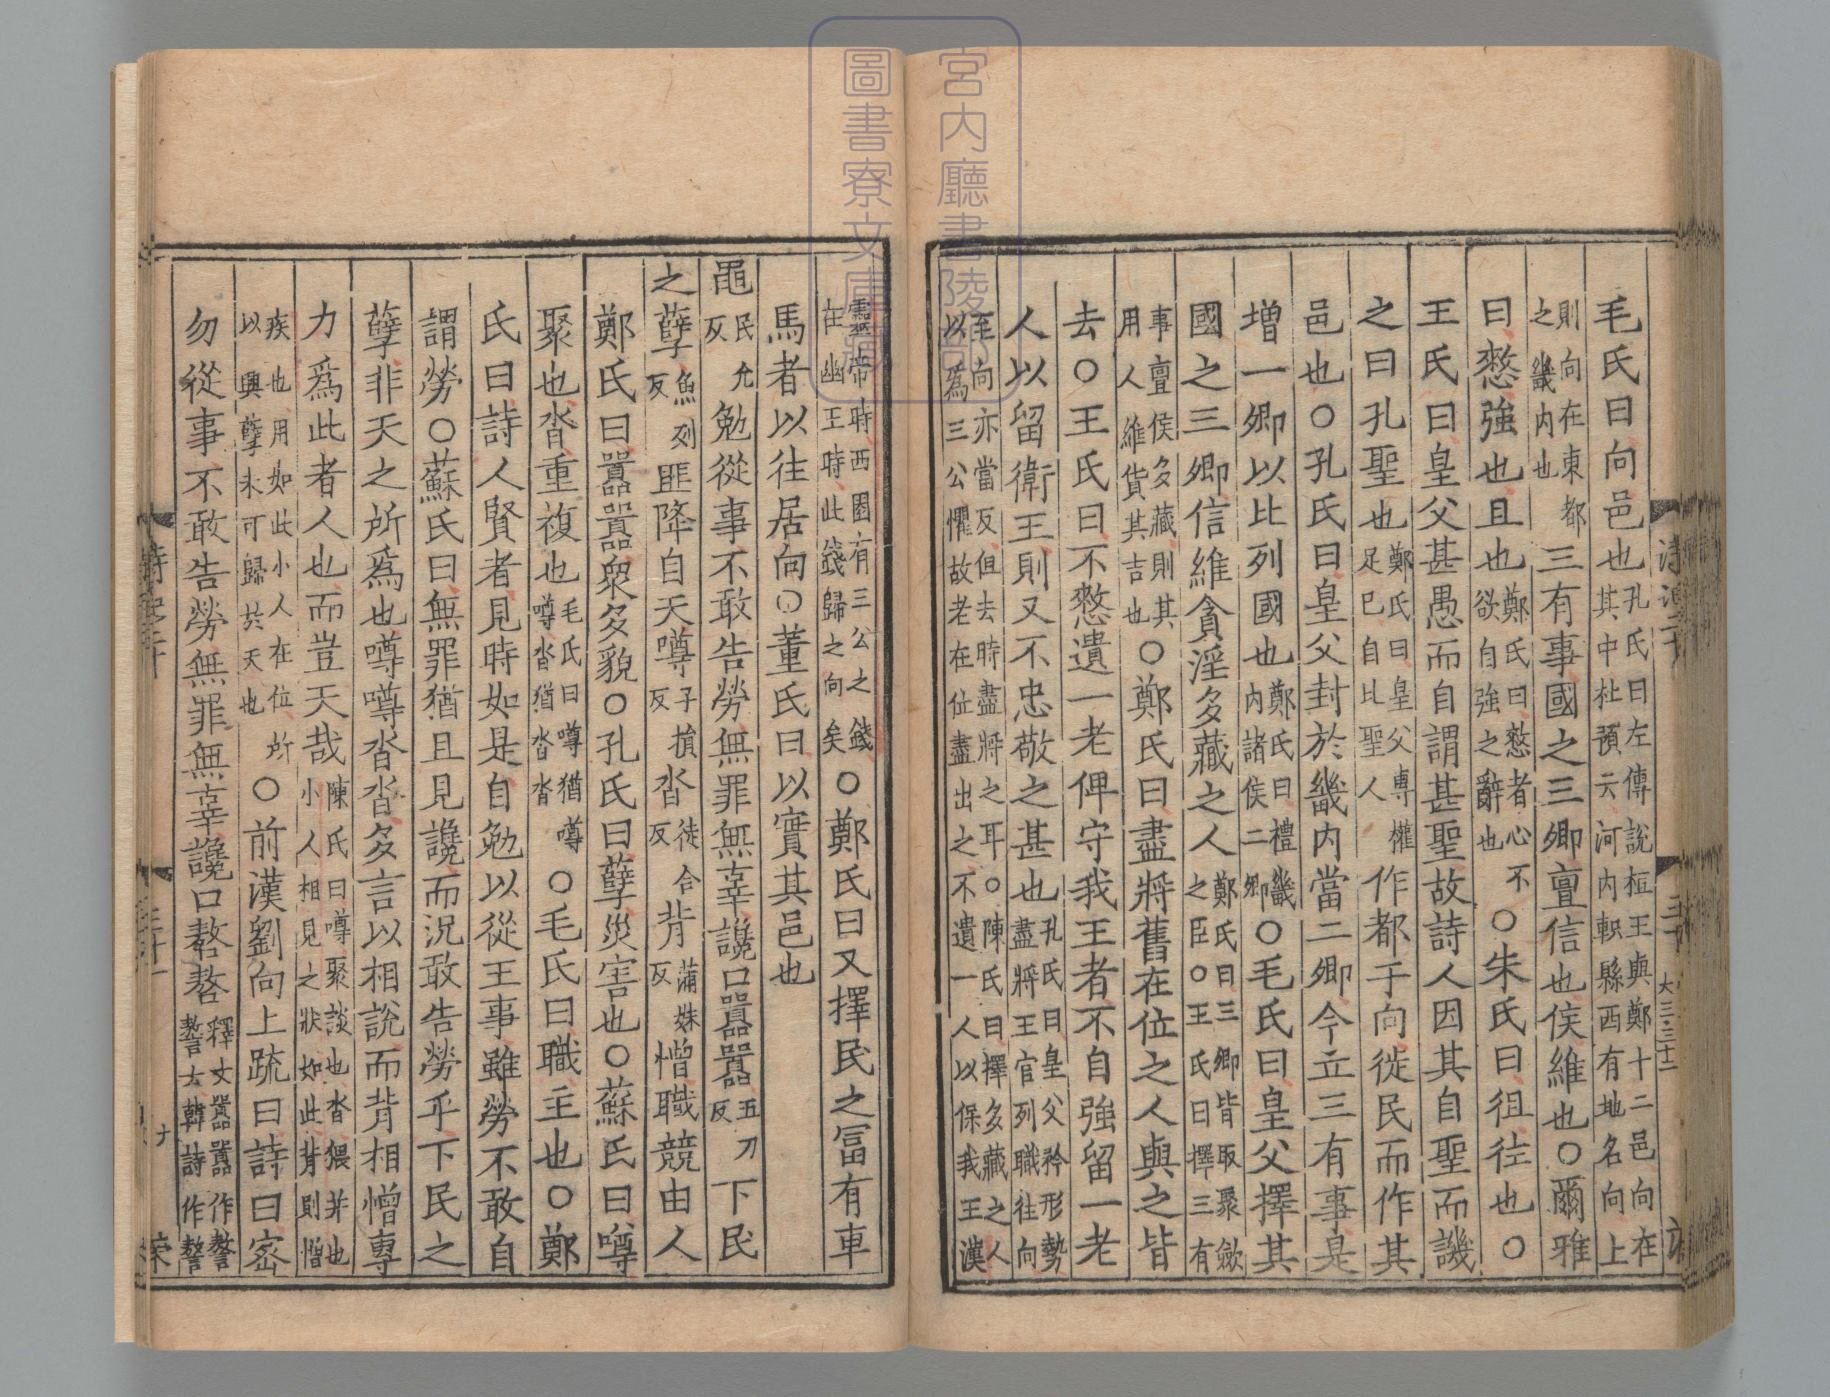 宮內廳書陵部
圖書寮文庫藏
毛氏曰向邑也孔氏曰左傳說桓王與鄭十二邑向在
其中杜預云河内軹縣西有地名向上
則向在東都
之畿内也三有事國之三卿亶信也侯維也○爾雅
曰憖強也且也鄭氏曰憖者心不
欲自強之辭也○朱氏曰徂往也○
王氏曰皇父甚愚而自謂甚聖故詩人因其自聖而譏
之曰孔聖也鄭氏曰皇父專權
足已自比聖人作都于向徙民而作其
邑也○孔氏曰皇父封於畿内當二卿今立三有事是
增一卿以比列國也鄭氏曰禮畿
内諸侯二卿○毛氏曰皇父擇其
國之三卿信維貪淫多藏之人鄭氏曰三卿皆取聚斂
之臣○王氏曰擇三有
事亶侯多藏則其
用人維貨其吉也○鄭氏曰盡將舊在位之人與之皆
去○王氏曰不憖遺一老俾守我王者不自強留一老
人以留衛王則又不忠敬之甚也孔氏曰皇父矜形勢
盡將王官列職往向
至向亦當反但去時盡將之耳○陳氏曰擇多藏之人
以為三公懼故老在位盡出之不遺一人以保我王漢
靈帝時西園有三公之錢
在幽王時此錢歸之向矣○鄭氏曰又擇民之冨有車
馬者以往居向○董氏曰以實其邑也
黽民允
反勉從事不敢告勞無罪無辜讒口嚻嚻五刀
反下民
之孽魚列
反匪降自天噂子損
反沓徒合
反背蒲妹
反憎職競由人
鄭氏曰嚻嚻衆多貌○孔氏曰孽災害也○蘇氏曰噂
聚也沓重複也毛氏曰噂猶噂
噂沓猶沓沓○毛氏曰職主也○鄭
氏曰詩人賢者見時如是自勉以從王事雖勞不敢自
謂勞○蘇氏曰無罪猶且見讒而況敢告勞乎下民之
孽非天之所爲也噂噂沓沓多言以相說而背相憎專
力爲此者人也而豈天哉陳氏曰噂聚談也沓猥并也
小人相見之狀如此背則憎
疾也用如此小人在位所
以興孽未可歸於天也○前漢劉向上疏曰詩曰密
勿從事不敢告勞無罪無辜讒口嗸嗸釋文嚻嚻作謷
謷韓詩作謷